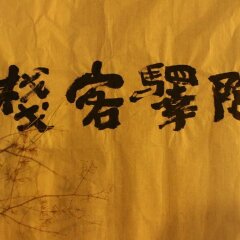 陽驛客棧